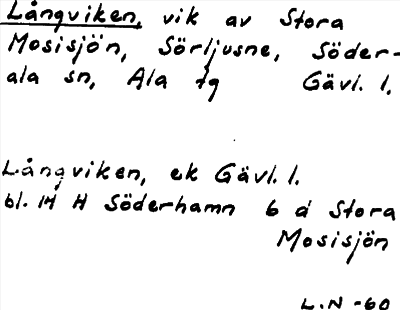 Långviken, vik av Stora
Mosisjön, Sörljusne, Söder-
ala sn, Ala tg Gävl. l.
Långviken, ek Gävl. l.
bl. 14 H Söderhamn 6 d Stora
Mosisjön
L.N -60